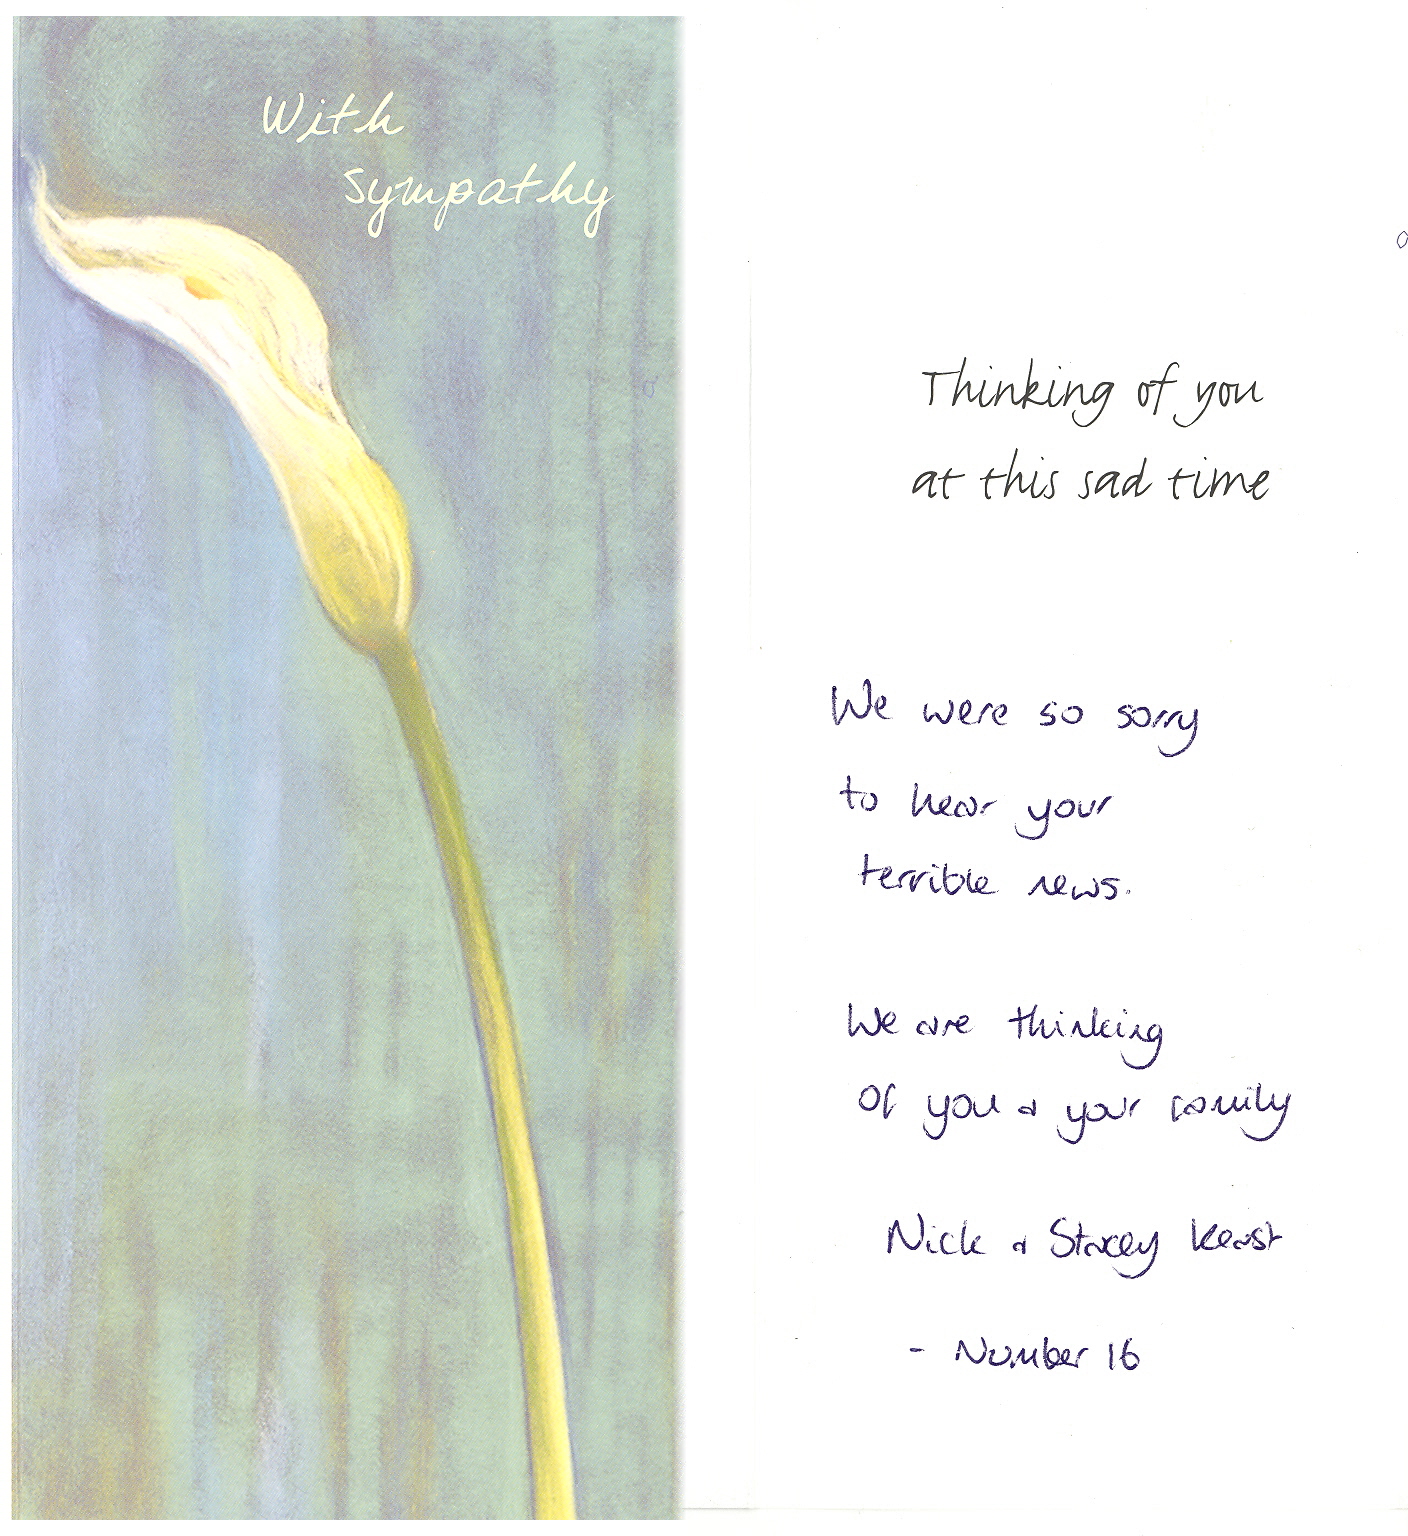 With
Sympathy
Thinking of you
at this sad time
We were so sorry
to hear your
terrible news.
We are thinking
of you & your family
Nick & Stacey Keast
- Number 16